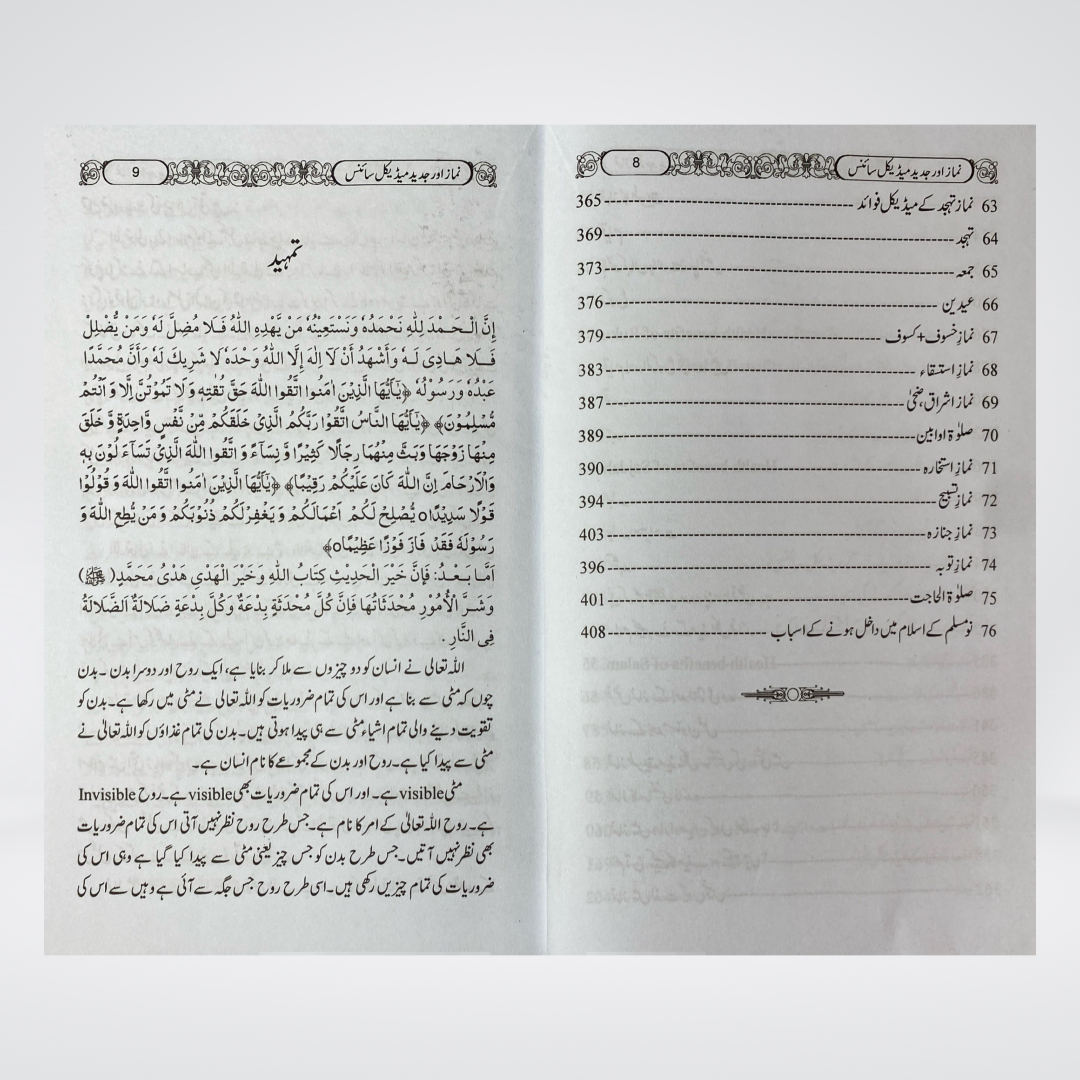 نماز اور جدید میڈیکل سائنس 8
63 نماز تہجد کے میڈیکل فوائد 365
64 تہجد 369
65 جمعہ 373
66 عیدین 376
67 نمازِ خسوف + کسوف 379
68 نمازِ استسقاء 383
69 نمازِ اشراق، ضحیٰ 387
70 صلوٰۃ اوابین 389
71 نمازِ استخارہ 390
72 نمازِ تسبیح 394
73 نمازِ جنازہ 403
74 نمازِ توبہ 396
75 صلوٰۃ الحاجت 401
76 نو مسلم کے اسلام میں داخل ہونے کے اسباب 408
نماز اور جدید میڈیکل سائنس 9
تمہید
إِنَّ الْحَمْدَ لِلّٰهِ نَحْمَدُهٗ وَنَسْتَعِيْنُهٗ مَنْ يَّهْدِهِ اللّٰهُ فَلَا مُضِلَّ لَهٗ وَمَنْ يُّضْلِلْ
فَلَا هَادِىَ لَهٗ وَأَشْهَدُ أَنْ لَّا اِلٰهَ إِلَّا اللّٰهُ وَحْدَهٗ لَا شَرِيْكَ لَهٗ وَأَنَّ مُحَمَّدًا
عَبْدُهٗ وَرَسُوْلُهٗ ﴿يٰٓاَيُّهَا الَّذِيْنَ اٰمَنُوا اتَّقُوا اللّٰهَ حَقَّ تُقٰتِهٖ وَلَا تَمُوْتُنَّ اِلَّا وَ اَنْتُمْ
مُّسْلِمُوْنَ﴾ ﴿يٰٓاَيُّهَا النَّاسُ اتَّقُوْا رَبَّكُمُ الَّذِىْ خَلَقَكُمْ مِّنْ نَّفْسٍ وَّاحِدَةٍ وَّ خَلَقَ
مِنْهَا زَوْجَهَا وَبَثَّ مِنْهُمَا رِجَالًا كَثِيْرًا وَّ نِسَآءً وَ اتَّقُوا اللّٰهَ الَّذِىْ تَسَآءَلُوْنَ بِهٖ
وَالْاَرْحَامَ اِنَّ اللّٰهَ كَانَ عَلَيْكُمْ رَقِيْبًا﴾ ﴿يٰٓاَيُّهَا الَّذِيْنَ اٰمَنُوا اتَّقُوا اللّٰهَ وَ قُوْلُوْا
قَوْلًا سَدِيْدًا٥ يُّصْلِحْ لَكُمْ اَعْمَالَكُمْ وَ يَغْفِرْ لَكُمْ ذُنُوْبَكُمْ وَ مَنْ يُّطِعِ اللّٰهَ وَ
رَسُوْلَهٗ فَقَدْ فَازَ فَوْزًا عَظِيْمًا٥﴾
اَمَّا بَعْدُ: فَإِنَّ خَيْرَ الْحَدِيْثِ كِتَابُ اللّٰهِ وَخَيْرَ الْهَدْيِ هَدْىُ مُحَمَّدٍ (ﷺ)
وَشَرَّ الْأُمُوْرِ مُحْدَثَاتُهَا فَإِنَّ كُلَّ مُحْدَثَةٍ بِدْعَةٌ وَكُلَّ بِدْعَةٍ ضَلَالَةٌ اَلضَّلَالَةُ
فِى النَّارِ.
اللہ تعالیٰ نے انسان کو دو چیزوں سے ملا کر بنایا ہے، ایک روح اور دوسرا بدن۔ بدن
چوں کہ مٹی سے بنا ہے اور اس کی تمام ضروریات کو اللہ تعالیٰ نے مٹی میں رکھا ہے۔ بدن کو
تقویت دینے والی تمام اشیاء مٹی سے ہی پیدا ہوتی ہیں۔ بدن کی تمام غذاؤں کو اللہ تعالیٰ نے
مٹی سے پیدا کیا ہے۔ روح اور بدن کے مجموعے کا نام انسان ہے۔
مٹی visible ہے۔ اور اس کی تمام ضروریات بھی visible ہے۔ روح Invisible
ہے۔ روح اللہ تعالیٰ کے امر کا نام ہے۔ جس طرح روح نظر نہیں آتی اس کی تمام ضروریات
بھی نظر نہیں آتیں۔ جس طرح بدن کو جس چیز یعنی مٹی سے پیدا کیا گیا ہے وہی اس کی
ضروریات کی تمام چیزیں رکھی ہیں۔ اسی طرح روح جس جگہ سے آئی ہے وہیں سے اس کی